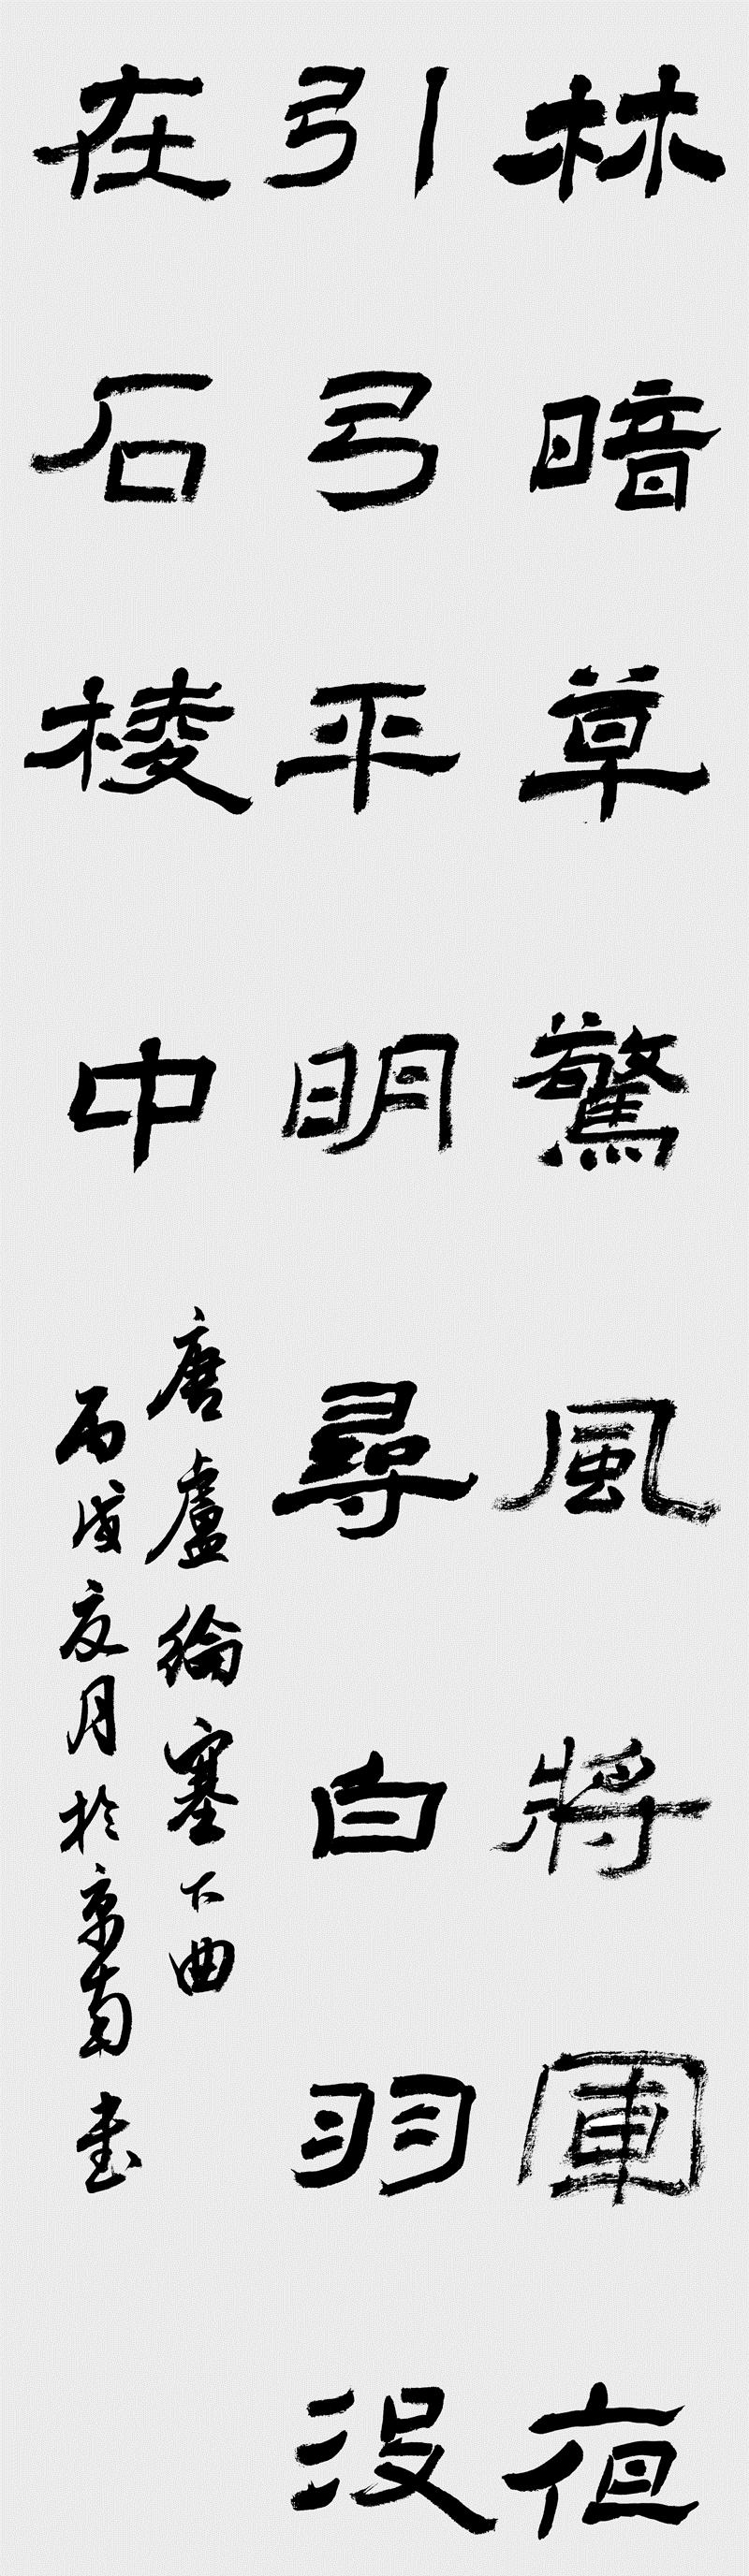 林暗草驚風將軍夜
引弓平明尋白羽沒
在石棱中
唐盧綸塞下曲
丙戌夏月於京南書